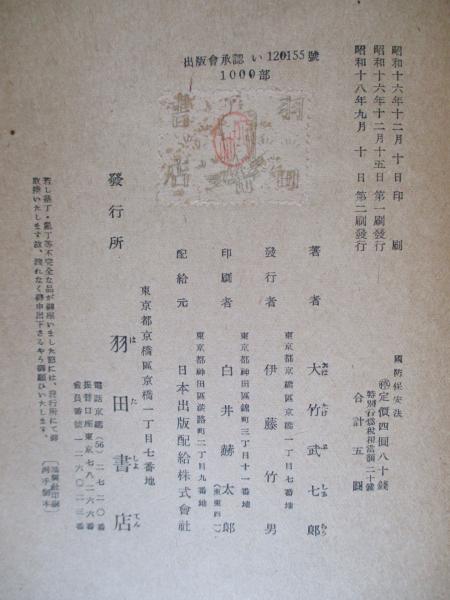 出版會承認 い 120155號
1000部
昭和十六年十二月十日印刷
昭和十六年十二月十五日第一刷發行
昭和十八年九月十日第二刷發行
國防保安法
㊞定價四圓八十錢
特別行爲税相當額二十錢
合計五圓
羽田書店
著者 大竹武七郎
おほたけぶしちらう
東京都京橋區京橋一丁目七番地
發行者 伊藤竹男
東京都神田區錦町三丁目十一番地
印刷者 白井赫太郎
(東東四一)
東京都神田區淡路町二丁目九番地
配給元 日本出版配給株式會社
東京都京橋區京橋一丁目七番地
發行所 羽田書店
はたしよてん
電話京橋(56)二七二〇番
振替口座東京七八二六六番
會員番號一二六〇二三番
若し落丁・亂丁等不完全な品が御座いました節には、發行所にて御
取換いたします故、洩れなく御申出下さるやう御願ひいたします。